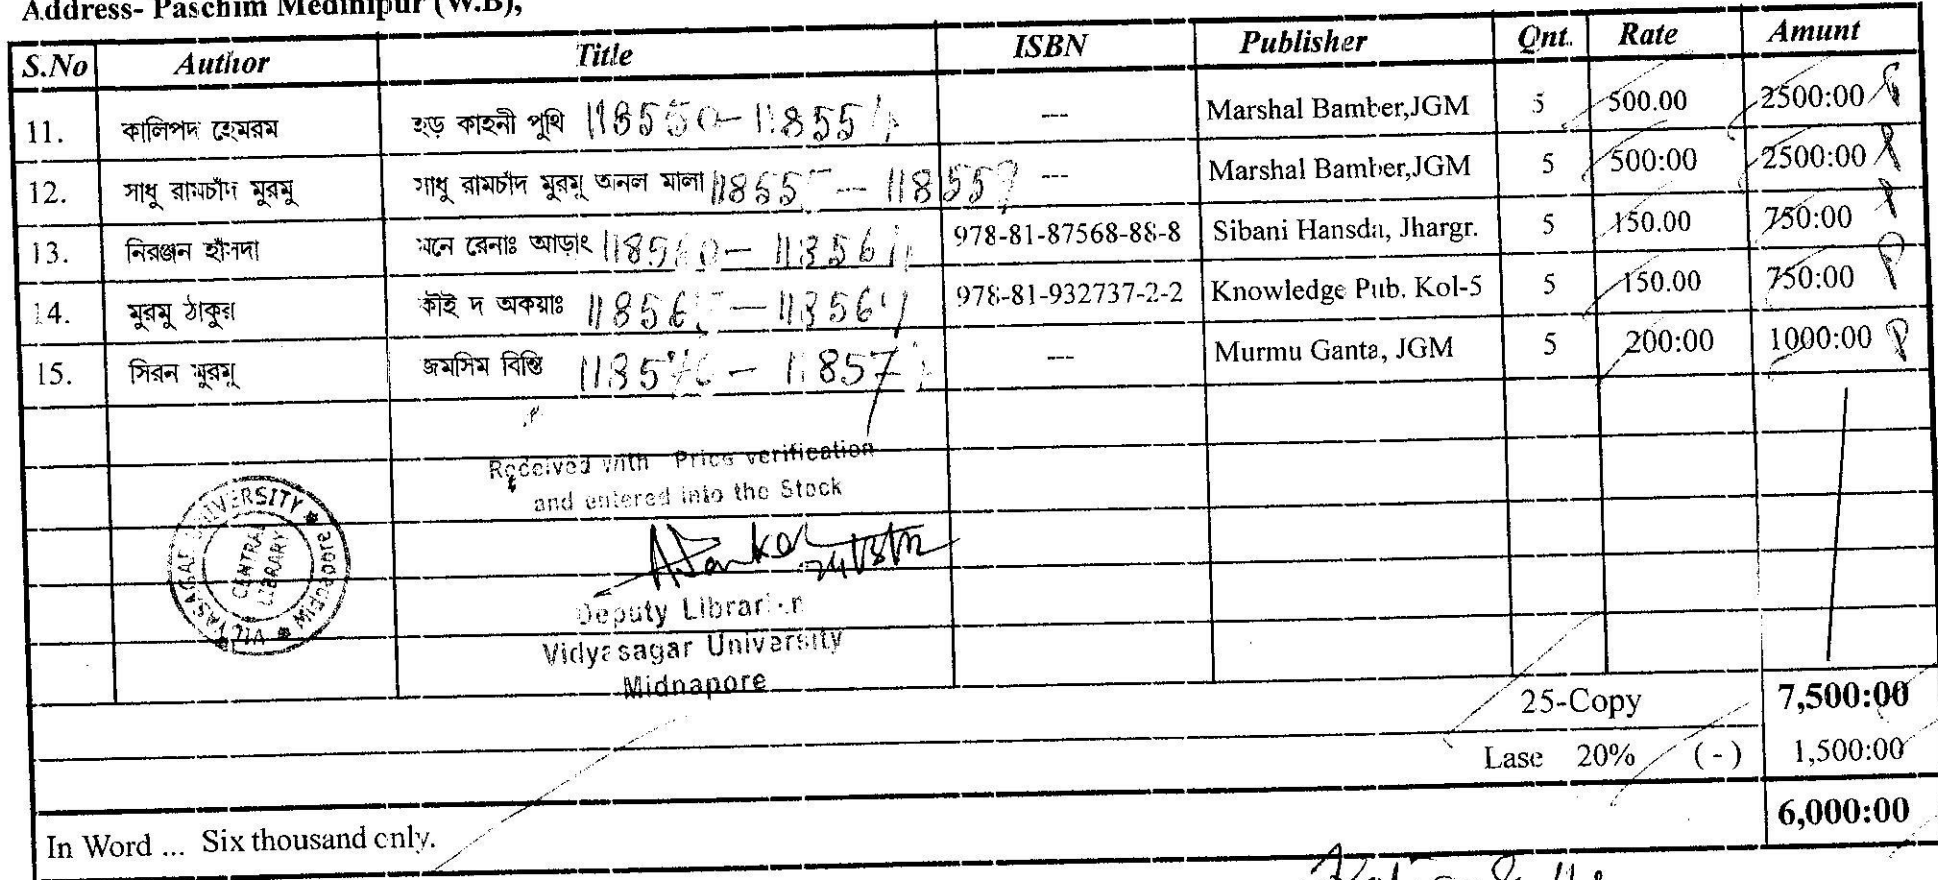 Address- Paschim Medinipur (W.B),
S.No Author Title ISBN Publisher Qnt. Rate Amunt
11. কালিপদ হেমরম হড় কাহনী পুথি 118550 - 118554 --- Marshal Bamber,JGM 5 500.00 2500:00
12. সাধু রামচাঁদ মুরমু সাধু রামচাঁদ মুরমু অনল মালা 118555 - 118559 --- Marshal Bamber,JGM 5 500:00 2500:00
13. নিরঞ্জন হাঁসদা মনে রেনাঃ আড়াং 118560 - 118564 978-81-87568-88-8 Sibani Hansda, Jhargr. 5 150.00 750:00
14. মুরমু ঠাকুর কাঁই দ অকয়াঃ 118565 - 118569 978-81-932737-2-2 Knowledge Pub. Kol-5 5 150.00 750:00
15. সিরন মুরমু জমসিম বিন্তি 118570 - 118574 --- Murmu Ganta, JGM 5 200:00 1000:00
Received with Price verification
and entered into the Stock
VIDYASAGAR UNIVERSITY * MIDNAPORE *
CENTRAL
LIBRARY
Deputy Librarian
Vidyasagar University
Midnapore
25-Copy 7,500:00
Lase 20% ( - ) 1,500:00
6,000:00
In Word ... Six thousand only.